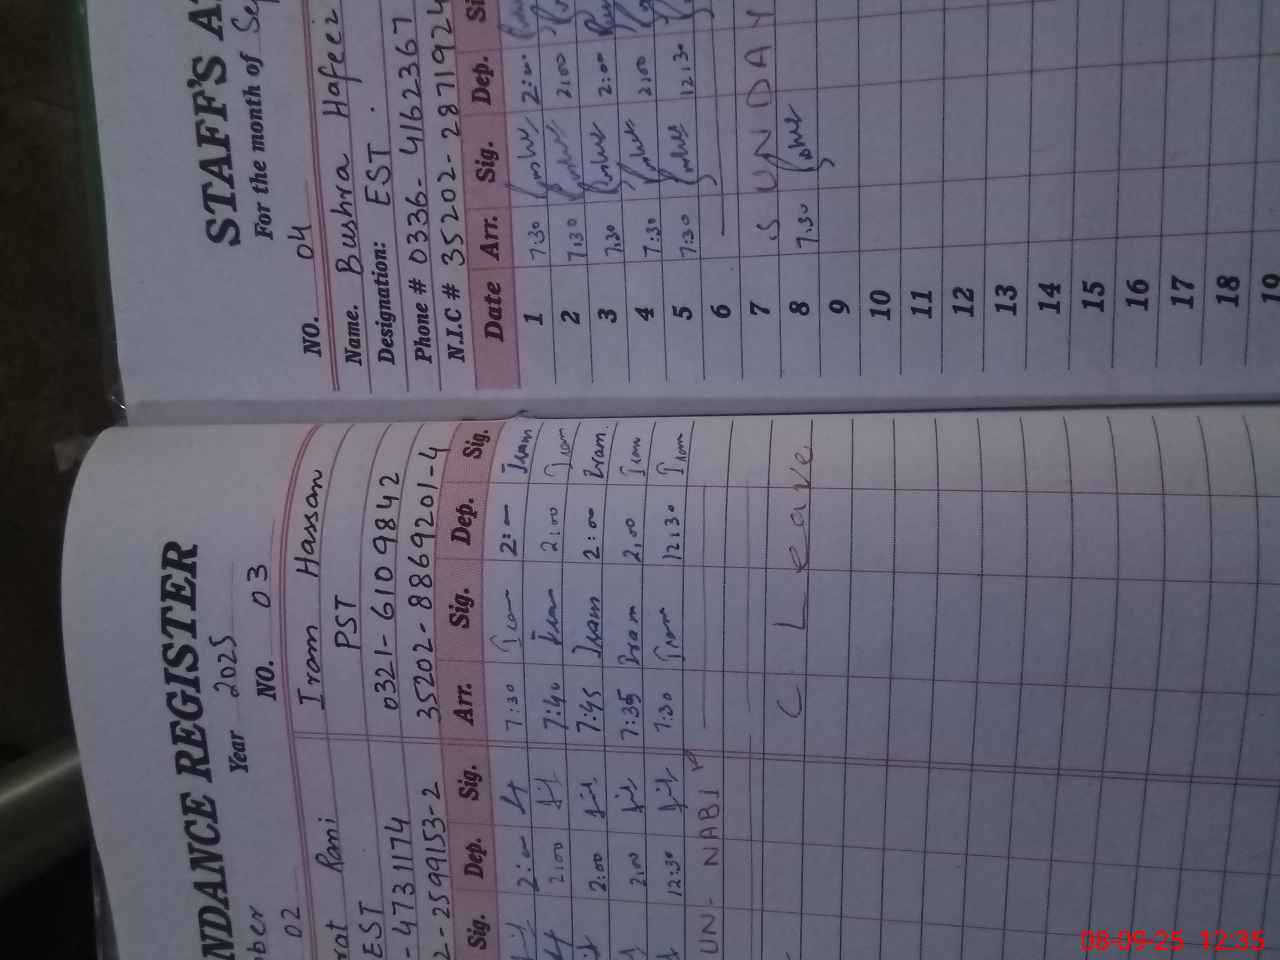 NDANCE REGISTER
ber Year 2025
02
rat Rani
EST
- 4731174
2-2599153-2
Sig. Dep. Sig.
2:—
2:00
2:00
2:00
12:30
UN- NABI
NO. 03
Iram Hassan
PST
0321-6109842
35202-8869201-4
Arr. Sig. Dep. Sig.
7:30 Iram 2:— Iram
7:40 Iram 2:00 Iram
7:45 Iram 2:00 Iram.
7:35 Iram 2:00 Iram
7:30 Iram 12:30 Iram
C. Leave
STAFF'S A
For the month of Sep
NO. 04
Name. Bushra Hafeez
Designation: EST.
Phone # 0336-4162367
N.I.C # 35202-2871924
Date Arr. Sig. Dep. Si
1 7:30 2:—
2 7:30 2:00
3 7:30 2:00
4 7:30 2:00
5 7:30 12:30
6 —
7 SUNDAY
8 7:30
9
10
11
12
13
14
15
16
17
18
19
08-09-25 12:35